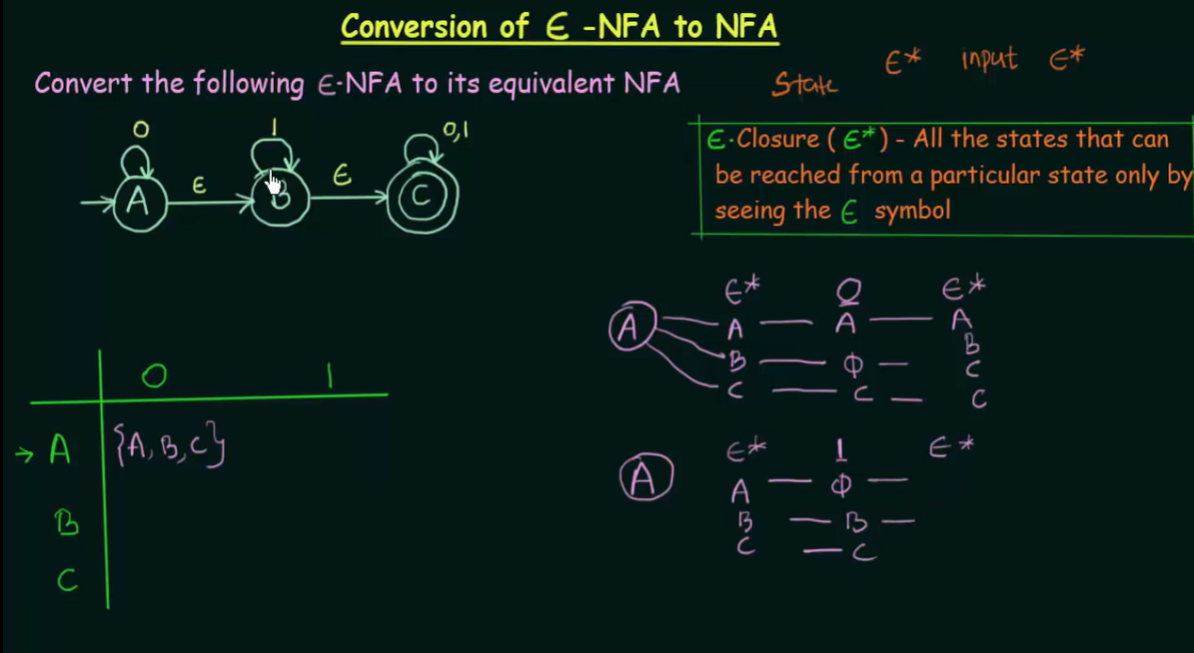 Conversion of ϵ -NFA to NFA
Convert the following ϵ-NFA to its equivalent NFA
State ϵ* input ϵ*
ϵ-Closure ( ϵ* ) - All the states that can
be reached from a particular state only by
seeing the ϵ symbol
0 1 0,1
A ϵ B ϵ C
ϵ* 0 ϵ*
A A A A
B
B Φ C
C C C
ϵ* 1 ϵ*
A A Φ
B B
C C
0 1
A {A, B, C}
B
C